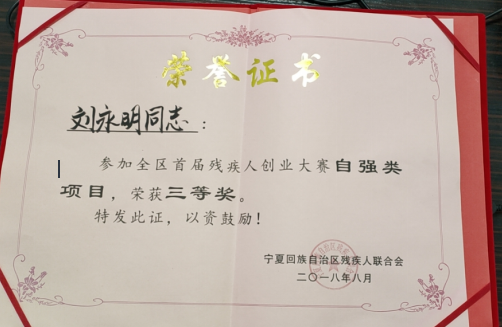 荣誉证书
刘永明同志：
参加全区首届残疾人创业大赛自强类
项目，荣获三等奖。
特发此证，以资鼓励！
宁夏回族自治区残疾人联合会
二〇一八年八月